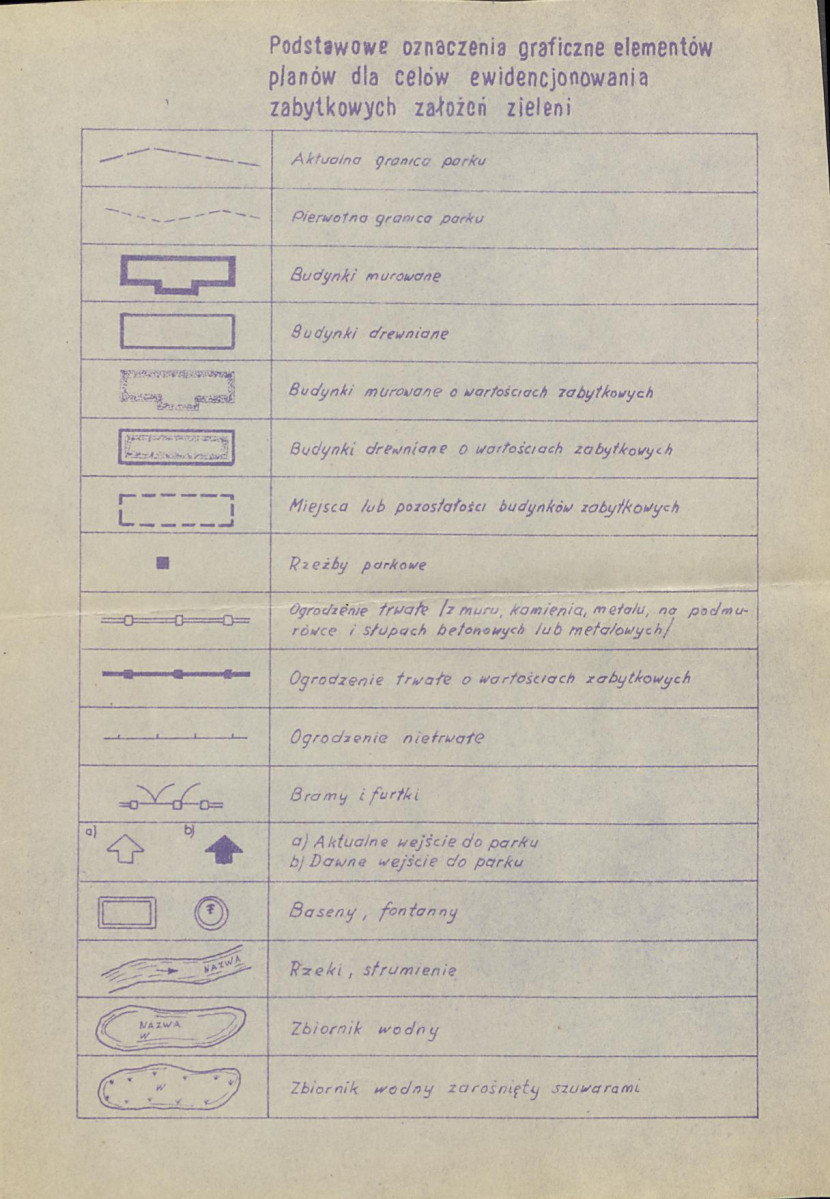 Podstawowe oznaczenia graficzne elementów
planów dla celów ewidencjonowania
zabytkowych założeń zieleni
Aktualna granica parku
Pierwotna granica parku
Budynki murowane
Budynki drewniane
Budynki murowane o wartościach zabytkowych
Budynki drewniane o wartościach zabytkowych
Miejsca lub pozostałości budynków zabytkowych
Rzeźby parkowe
Ogrodzenie trwałe /z muru, kamienia, metalu, na podmu-
rówce i słupach betonowych lub metalowych/
Ogrodzenie trwałe o wartościach zabytkowych
Ogrodzenie nietrwałe
Bramy i furtki
a) b)
a) Aktualne wejście do parku
b) Dawne wejście do parku
Baseny, fontanny
NAZWA
Rzeki, strumienie
NAZWA
W
Zbiornik wodny
W
Zbiornik wodny zarośnięty szuwarami